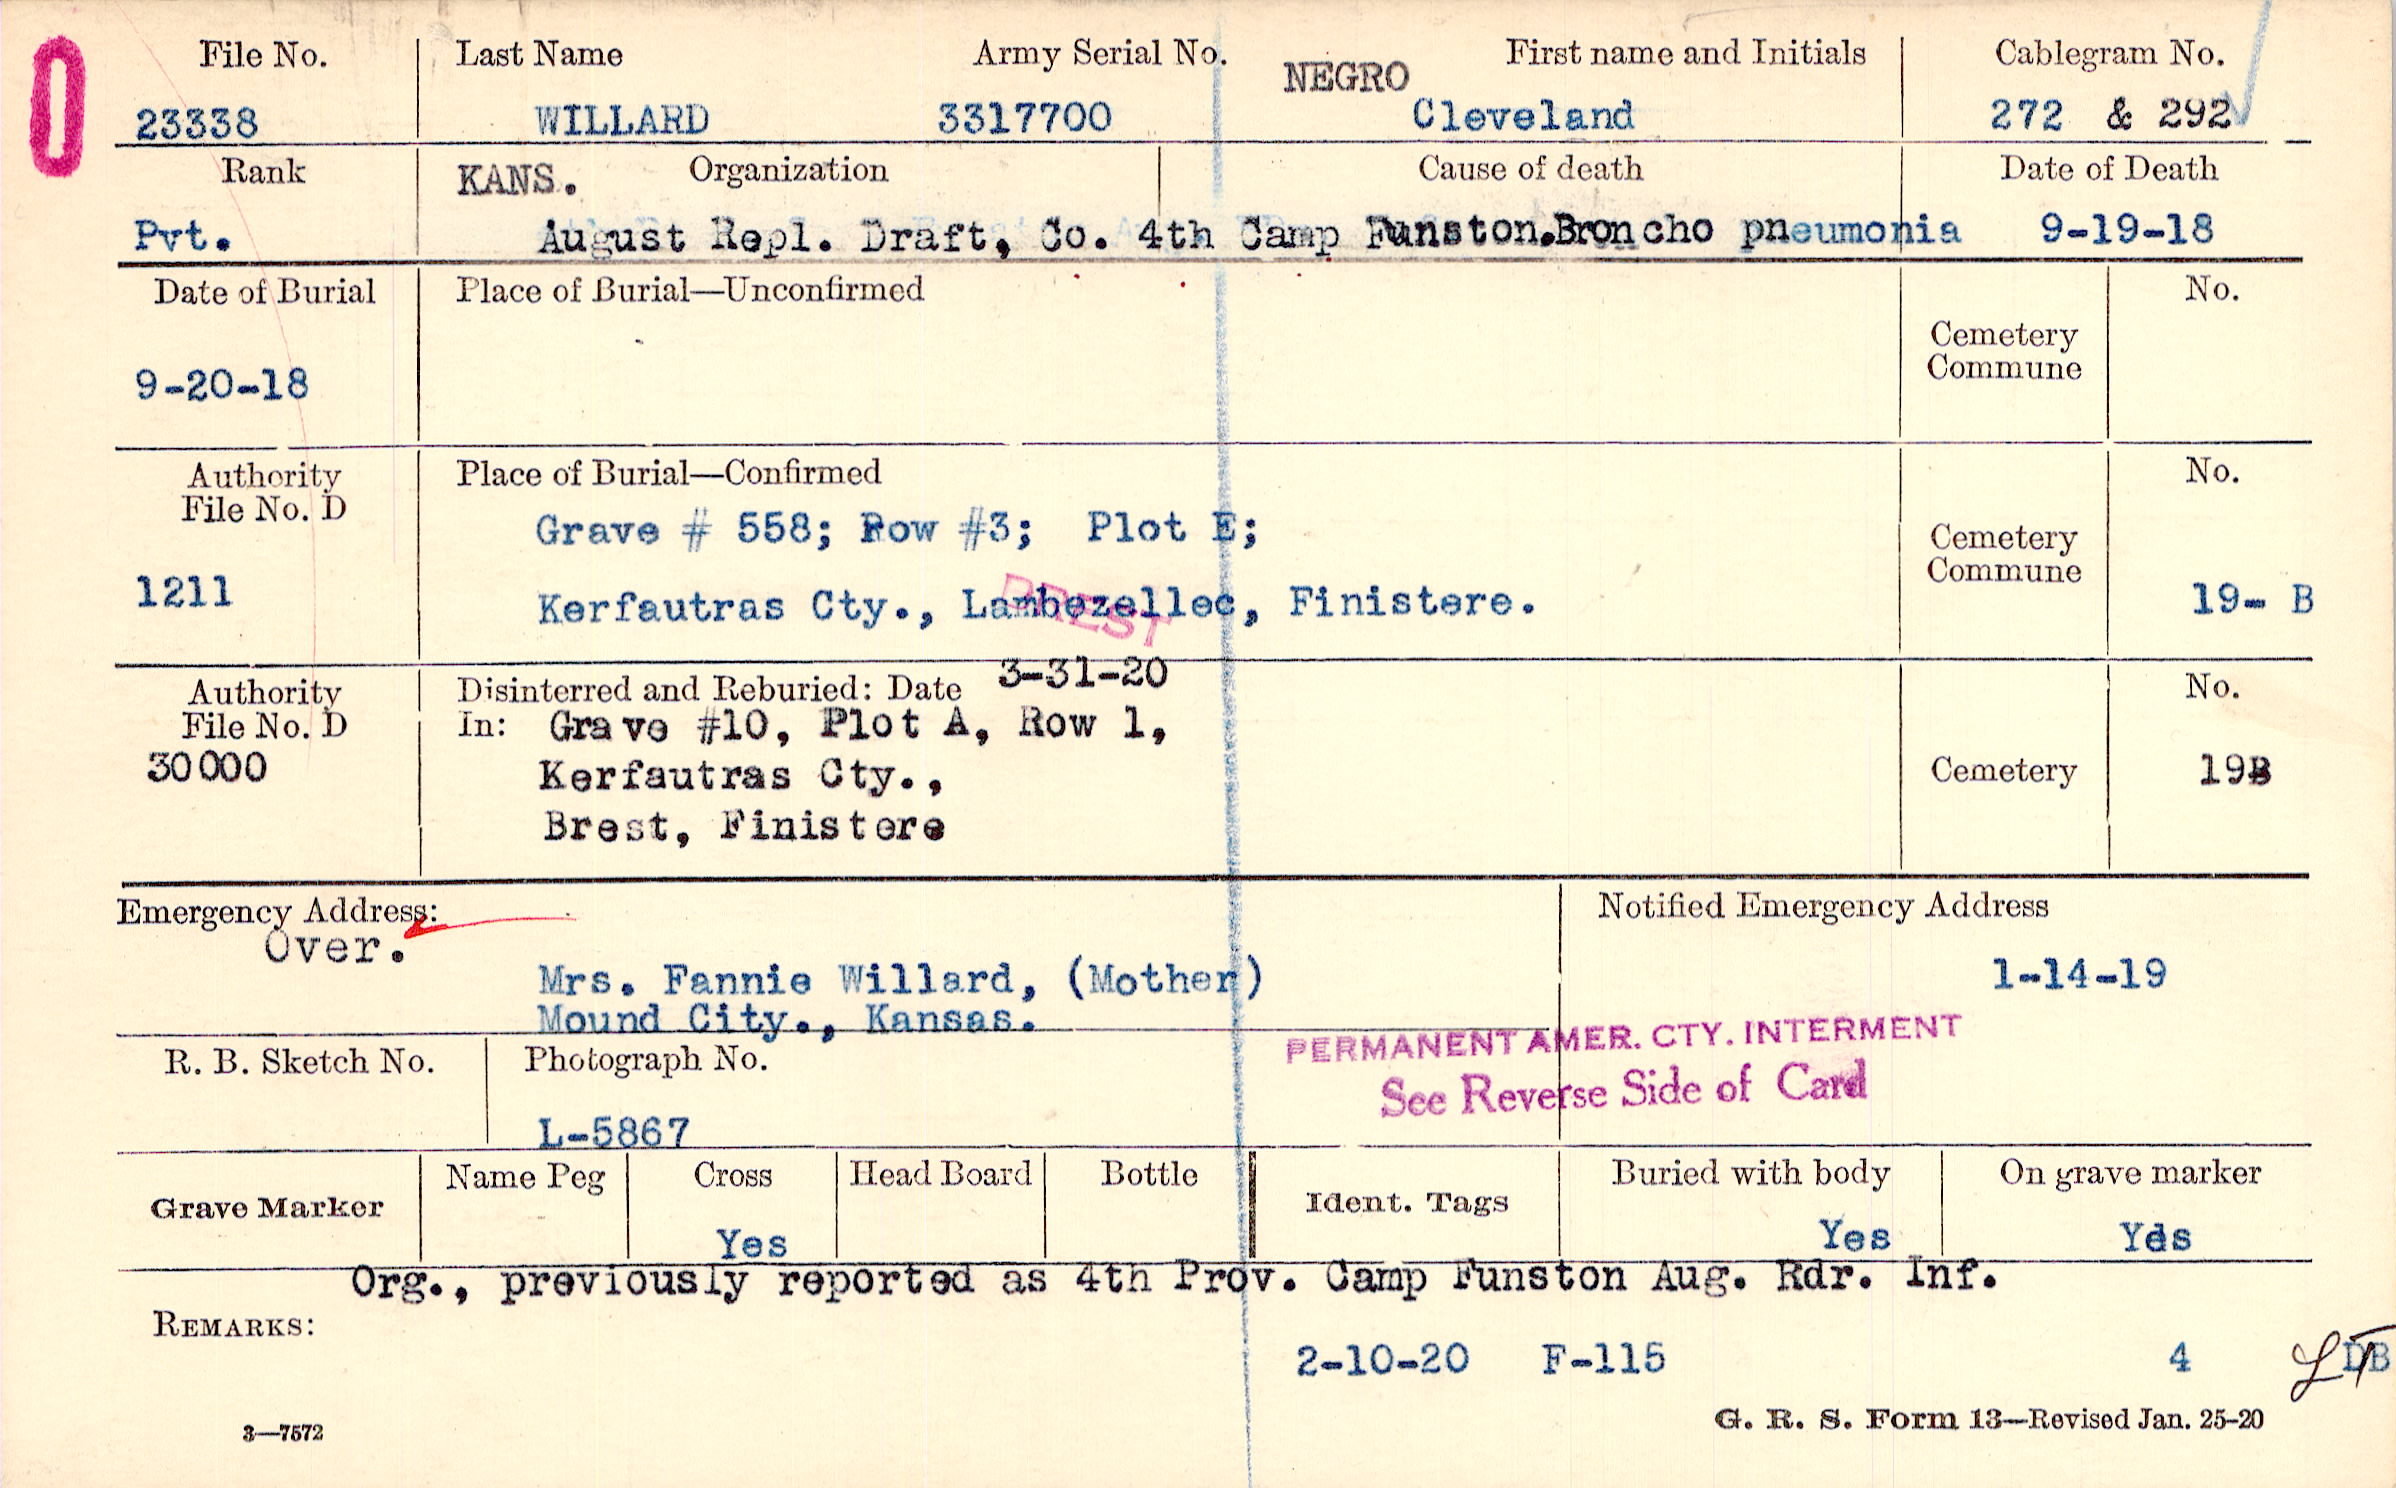 0
File No. Last Name Army Serial No. NEGRO First name and Initials Cablegram No.
23338 WILLARD 3317700 Cleveland 272 & 292
Rank KANS. Organization Cause of death Date of Death
Pvt. August Repl. Draft, Co. 4th Camp Funston. Broncho pneumonia 9-19-18
Date of Burial Place of Burial—Unconfirmed No.
Cemetery
Commune
9-20-18
Authority Place of Burial—Confirmed No.
File No. D
Grave # 558; Row #3; Plot E;
Cemetery
Commune
1211 Kerfautras Cty., Lambezellec, Finistere. 19- B
BREST
Authority Disinterred and Reburied: Date 3-31-20 No.
File No. D In: Grave #10, Plot A, Row 1,
30000 Kerfautras Cty., Cemetery 19B
Brest, Finistere
Emergency Address: Notified Emergency Address
Over.
Mrs. Fannie Willard, (Mother) 1-14-19
Mound City., Kansas.
PERMANENT AMER. CTY. INTERMENT
R. B. Sketch No. Photograph No. See Reverse Side of Card
L-5867
Grave Marker Name Peg Cross Head Board Bottle Ident. Tags Buried with body On grave marker
Yes Yes Yes
Org., previously reported as 4th Prov. Camp Funston Aug. Rdr. Inf.
REMARKS:
2-10-20 F-115 4 DB
3—7572 G. R. S. Form 13—Revised Jan. 25-20